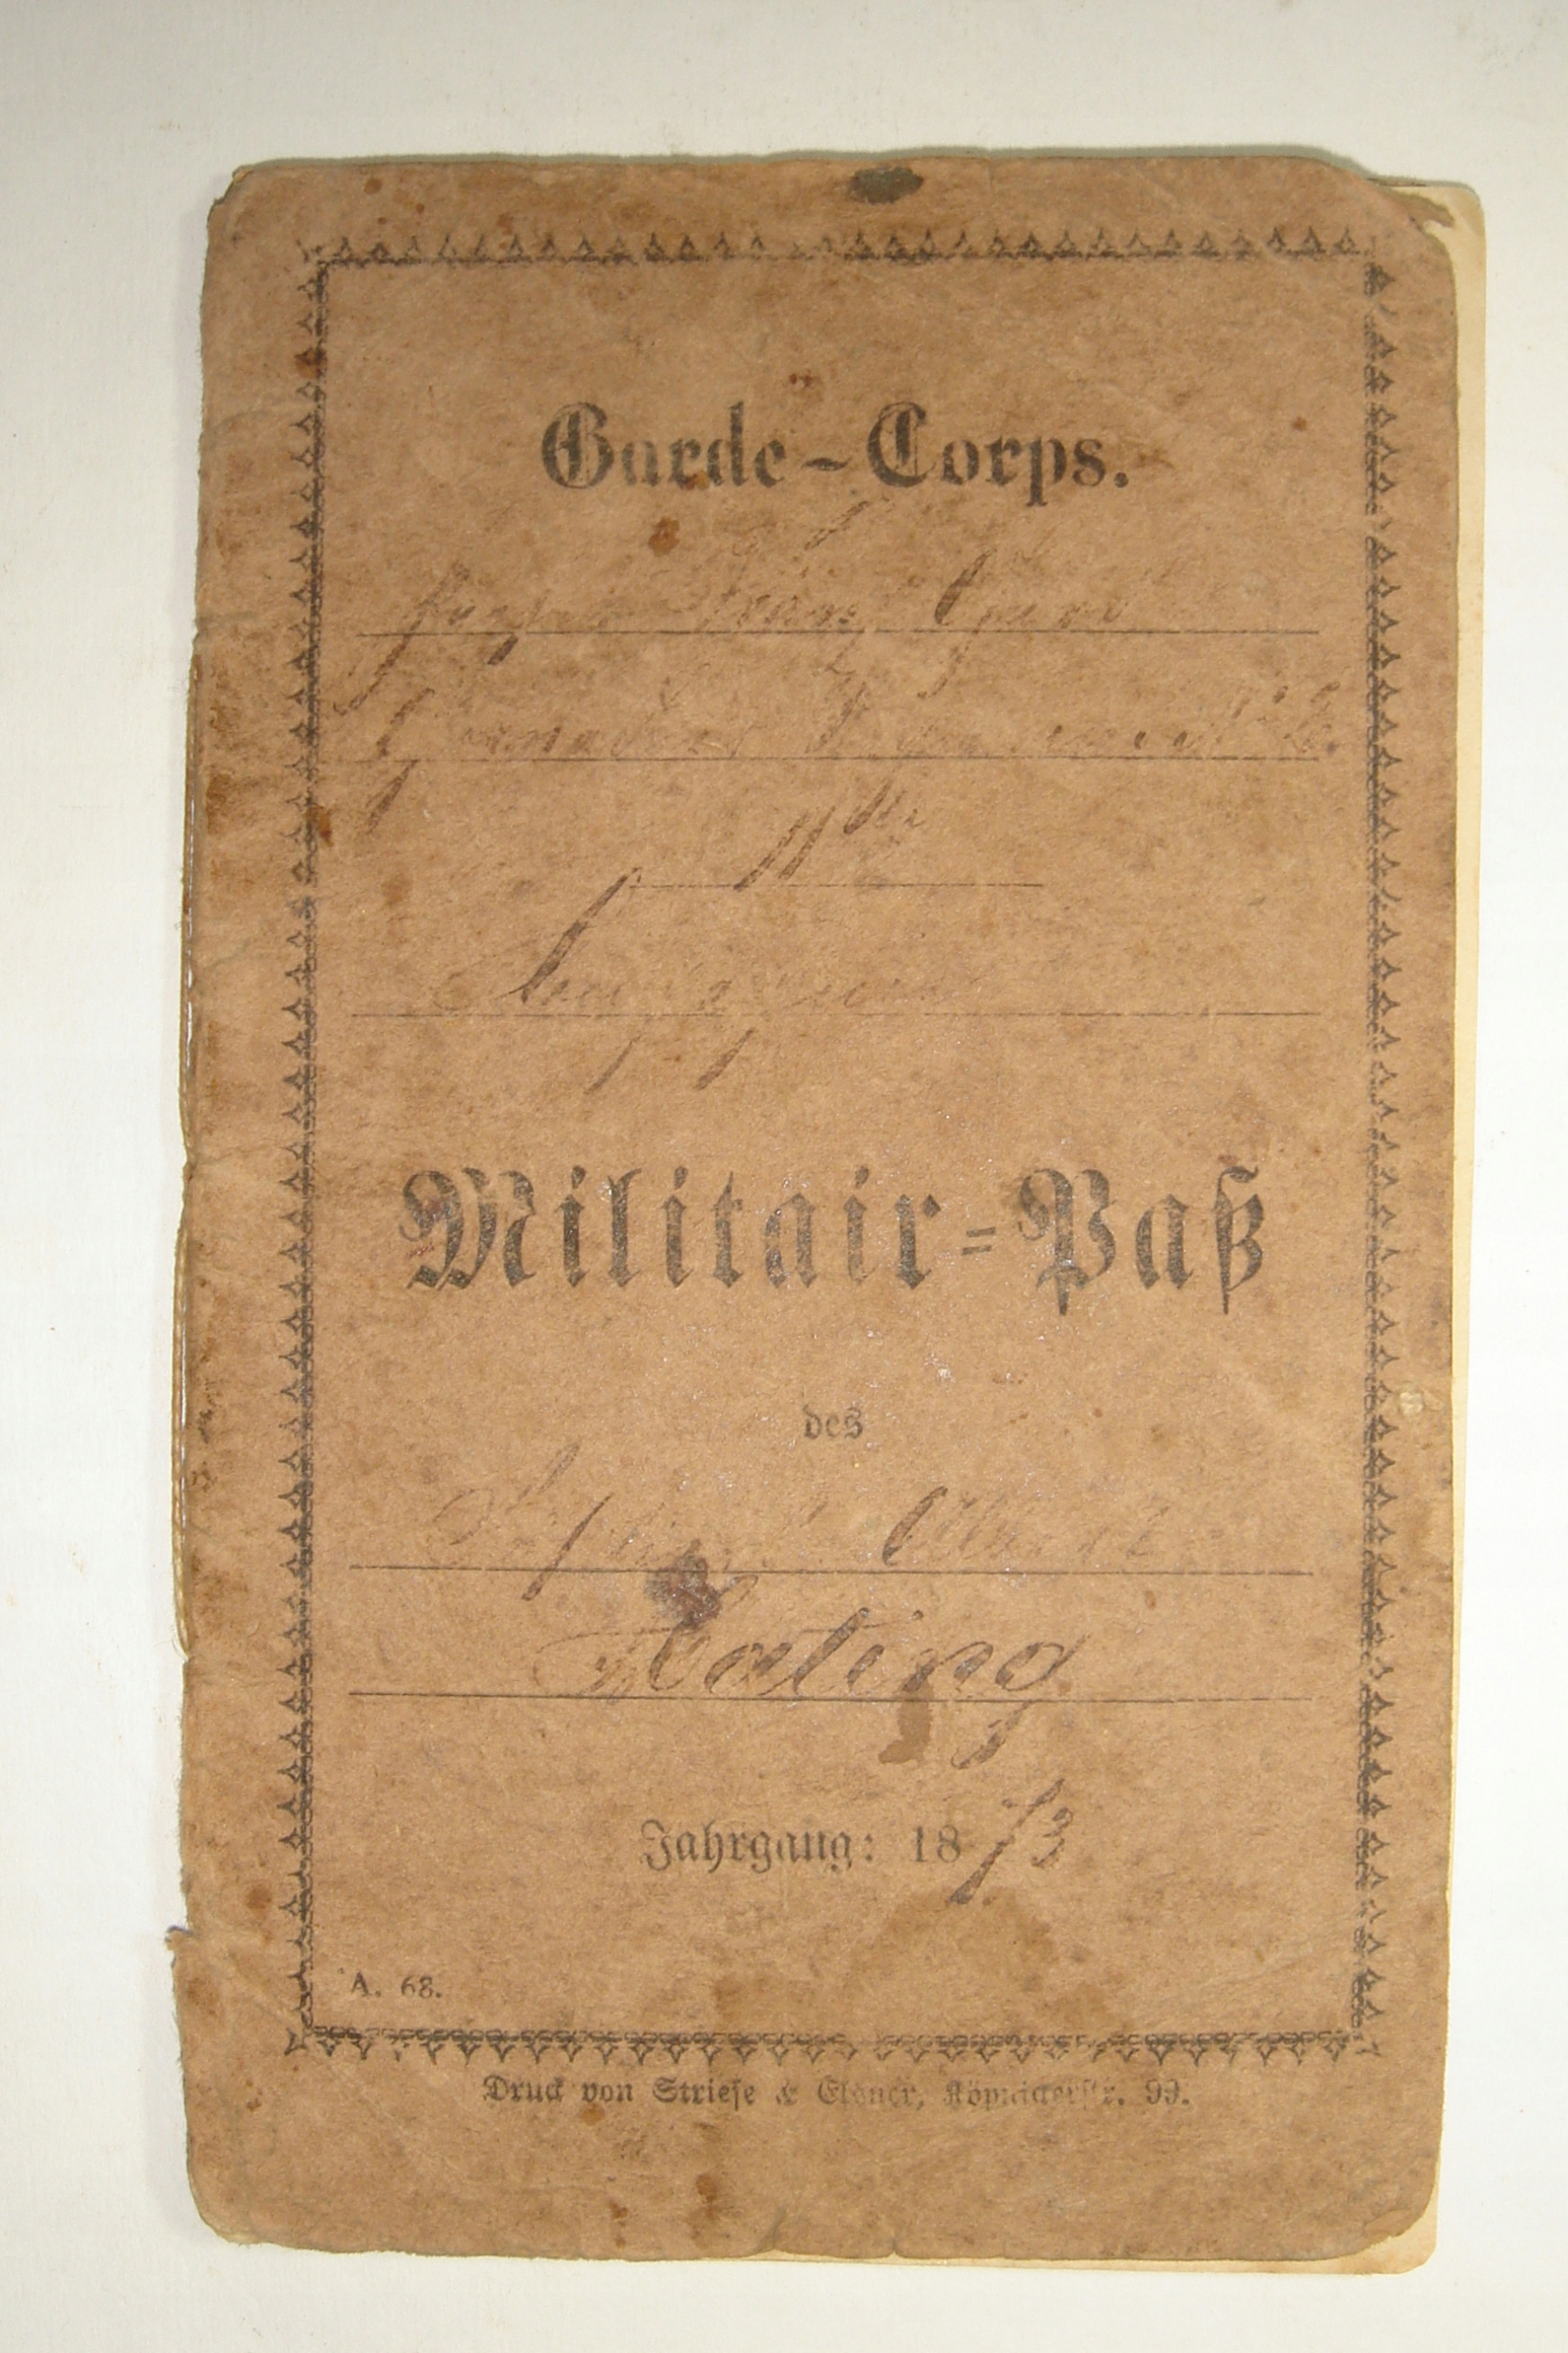 Garde-Corps.
Kaiser Franz Garde
Grenadier Regiment
11te
Compagnie
Militair-Paß
des
Albert
Koting
Jahrgang: 1873
A. 68.
Druck von Striese & Köpnickerstr. 99.